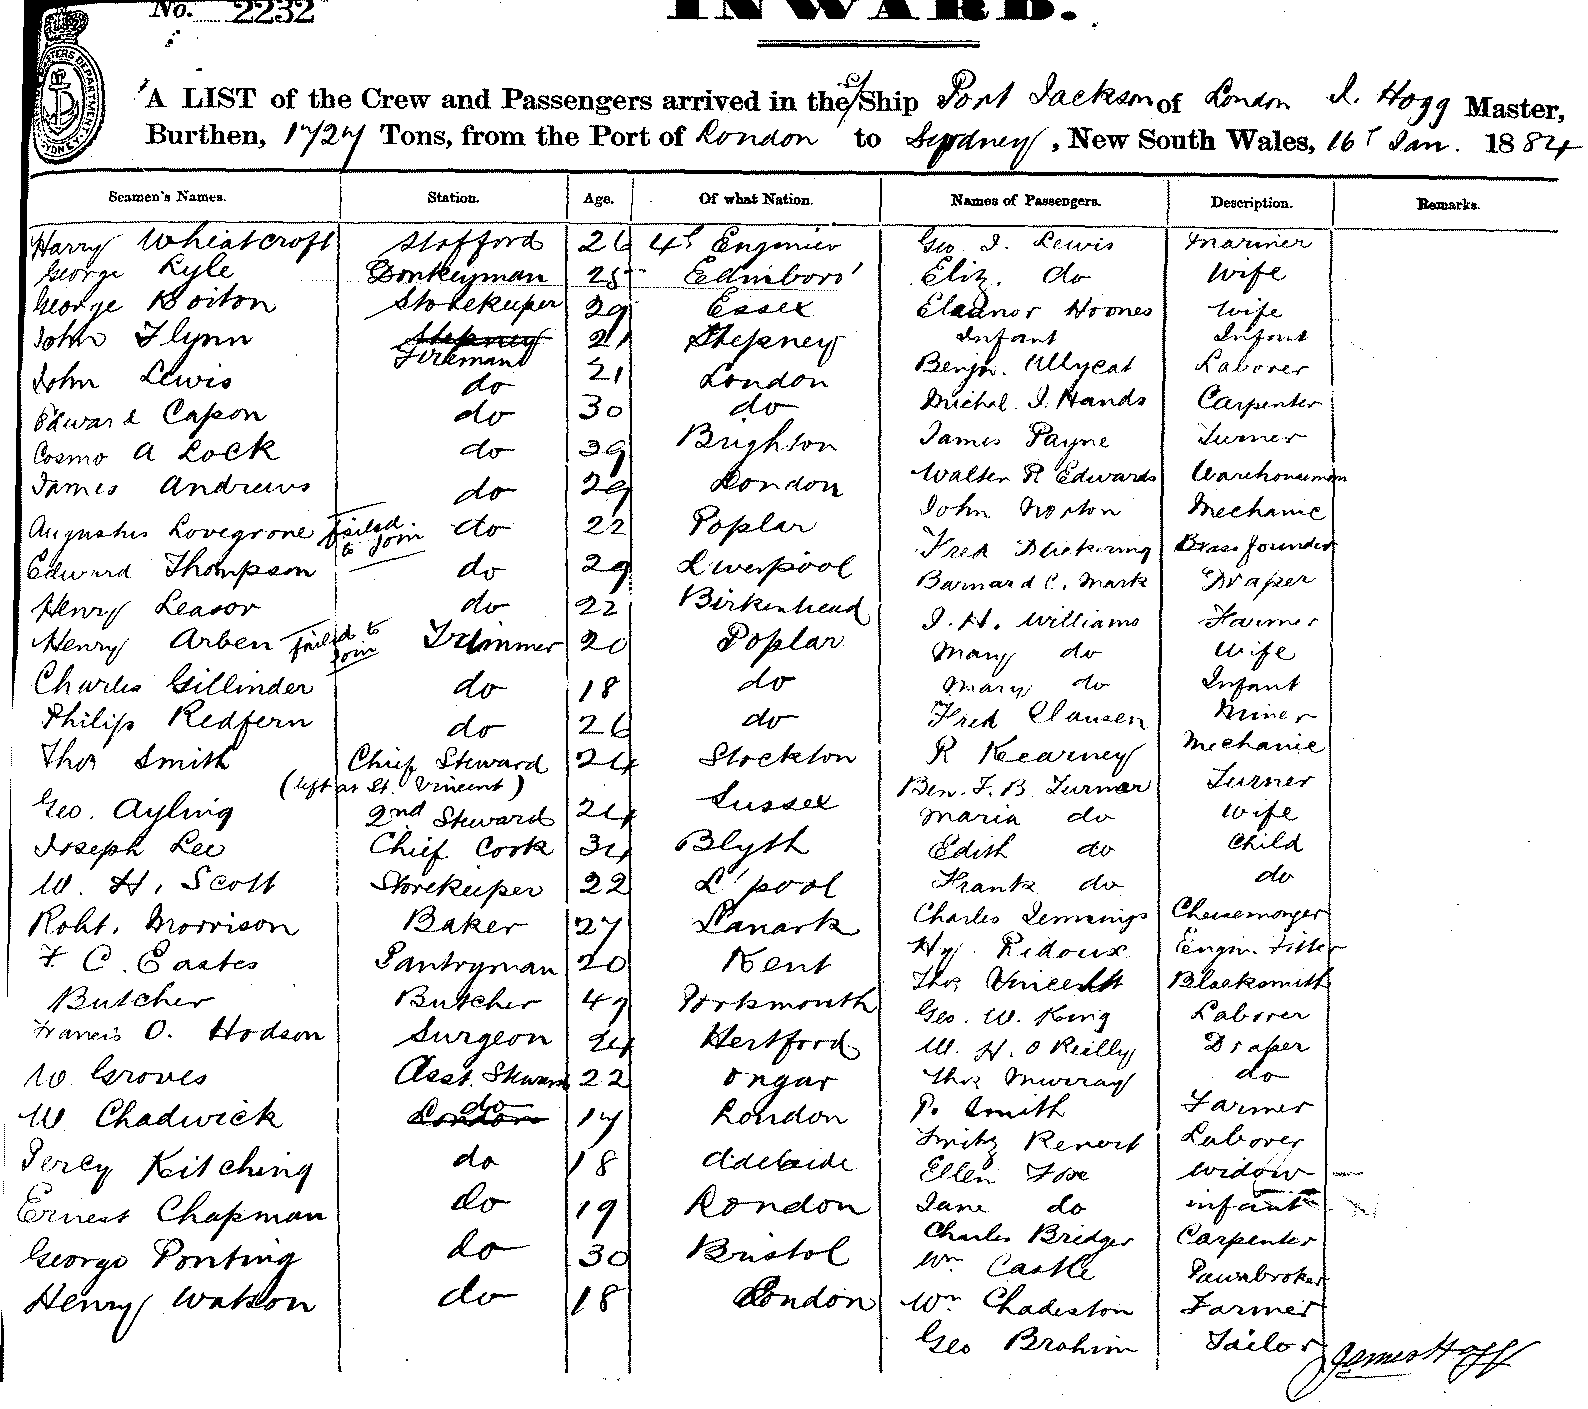 No. 2232
INWARD.
A LIST of the Crew and Passengers arrived in the S/Ship Port Jackson of London J. Hogg Master,
Burthen, 1727 Tons, from the Port of London to Sydney, New South Wales, 16t Jan. 1884
Seamen's Names. Station. Age. Of what Nation. Names of Passengers. Description. Remarks.
Harry Wheatcroft Stafford 26 4th Engineer Geo J. Lewis Mariner
George Lyle Donkeyman 25 Edinboro' Eliz. do Wife
George Boiton Storekeeper 29 Essex Eleanor Hoones Wife
John Flynn Stepney Fireman 21 Stepney Infant Infant
John Lewis do 21 London Benjn. Allycat Laborer
Edward Capon do 30 do Michel. J. Hands Carpenter
Cosmo A Lock do 39 Brighton James Payne Turner
James Andrews do 29 London Walter R Edwards Warehouseman
Augustus Lovegrone failed to join do 22 Poplar John Norton Mechanic
Edward Thompson do 29 Liverpool Fred Blickering Brass founder
Henry Leasor do 22 Birkenhead Barnard C. Mark Draper
Henry Arben failed to join Trimmer 20 Poplar J. H. Williams Farmer
Mary do Wife
Charles Gillinder do 18 do Mary do Infant
Philip Redfern do 26 do Fred Clausen Miner
Thos Smith Chief Steward 24 Stockton R Kearney Mechanic
(left at St. Vincent) Ben. F. B. Turner Turner
Geo. Ayling 2nd Steward 24 Sussex Maria do Wife
Joseph Lee Chief Cook 34 Blyth Edith do Child
W. H. Scott Storekeeper 22 L'pool Frank do do
Robt. Morrison Baker 27 Lanark Charles Jennings Cheesemonger
F. C. Eastes Pantryman 20 Kent Hy. Ridoux Engin. Fitter
Butcher Butcher 49 Portsmouth Thos Vincent Blacksmith
Geo. W. King Laborer
Francis O. Hodson Surgeon 24 Hertford W. H. O Reilly Draper
W Groves Asst. Steward 22 Ongar Thos Murray do
W Chadwick London do 17 London P. Smith Farmer
Fritz Renert Laborer
Percy Kitching do 18 Adelaide Ellen Fox Widow
Ernest Chapman do 19 London Jane do infant
George Ponting do 30 Bristol Charles Bridger Carpenter
Wm Castle Pawnbroker
Henry Watson do 18 London Wm Chadeston Farmer
Geo Brahim Tailor
James Hogg